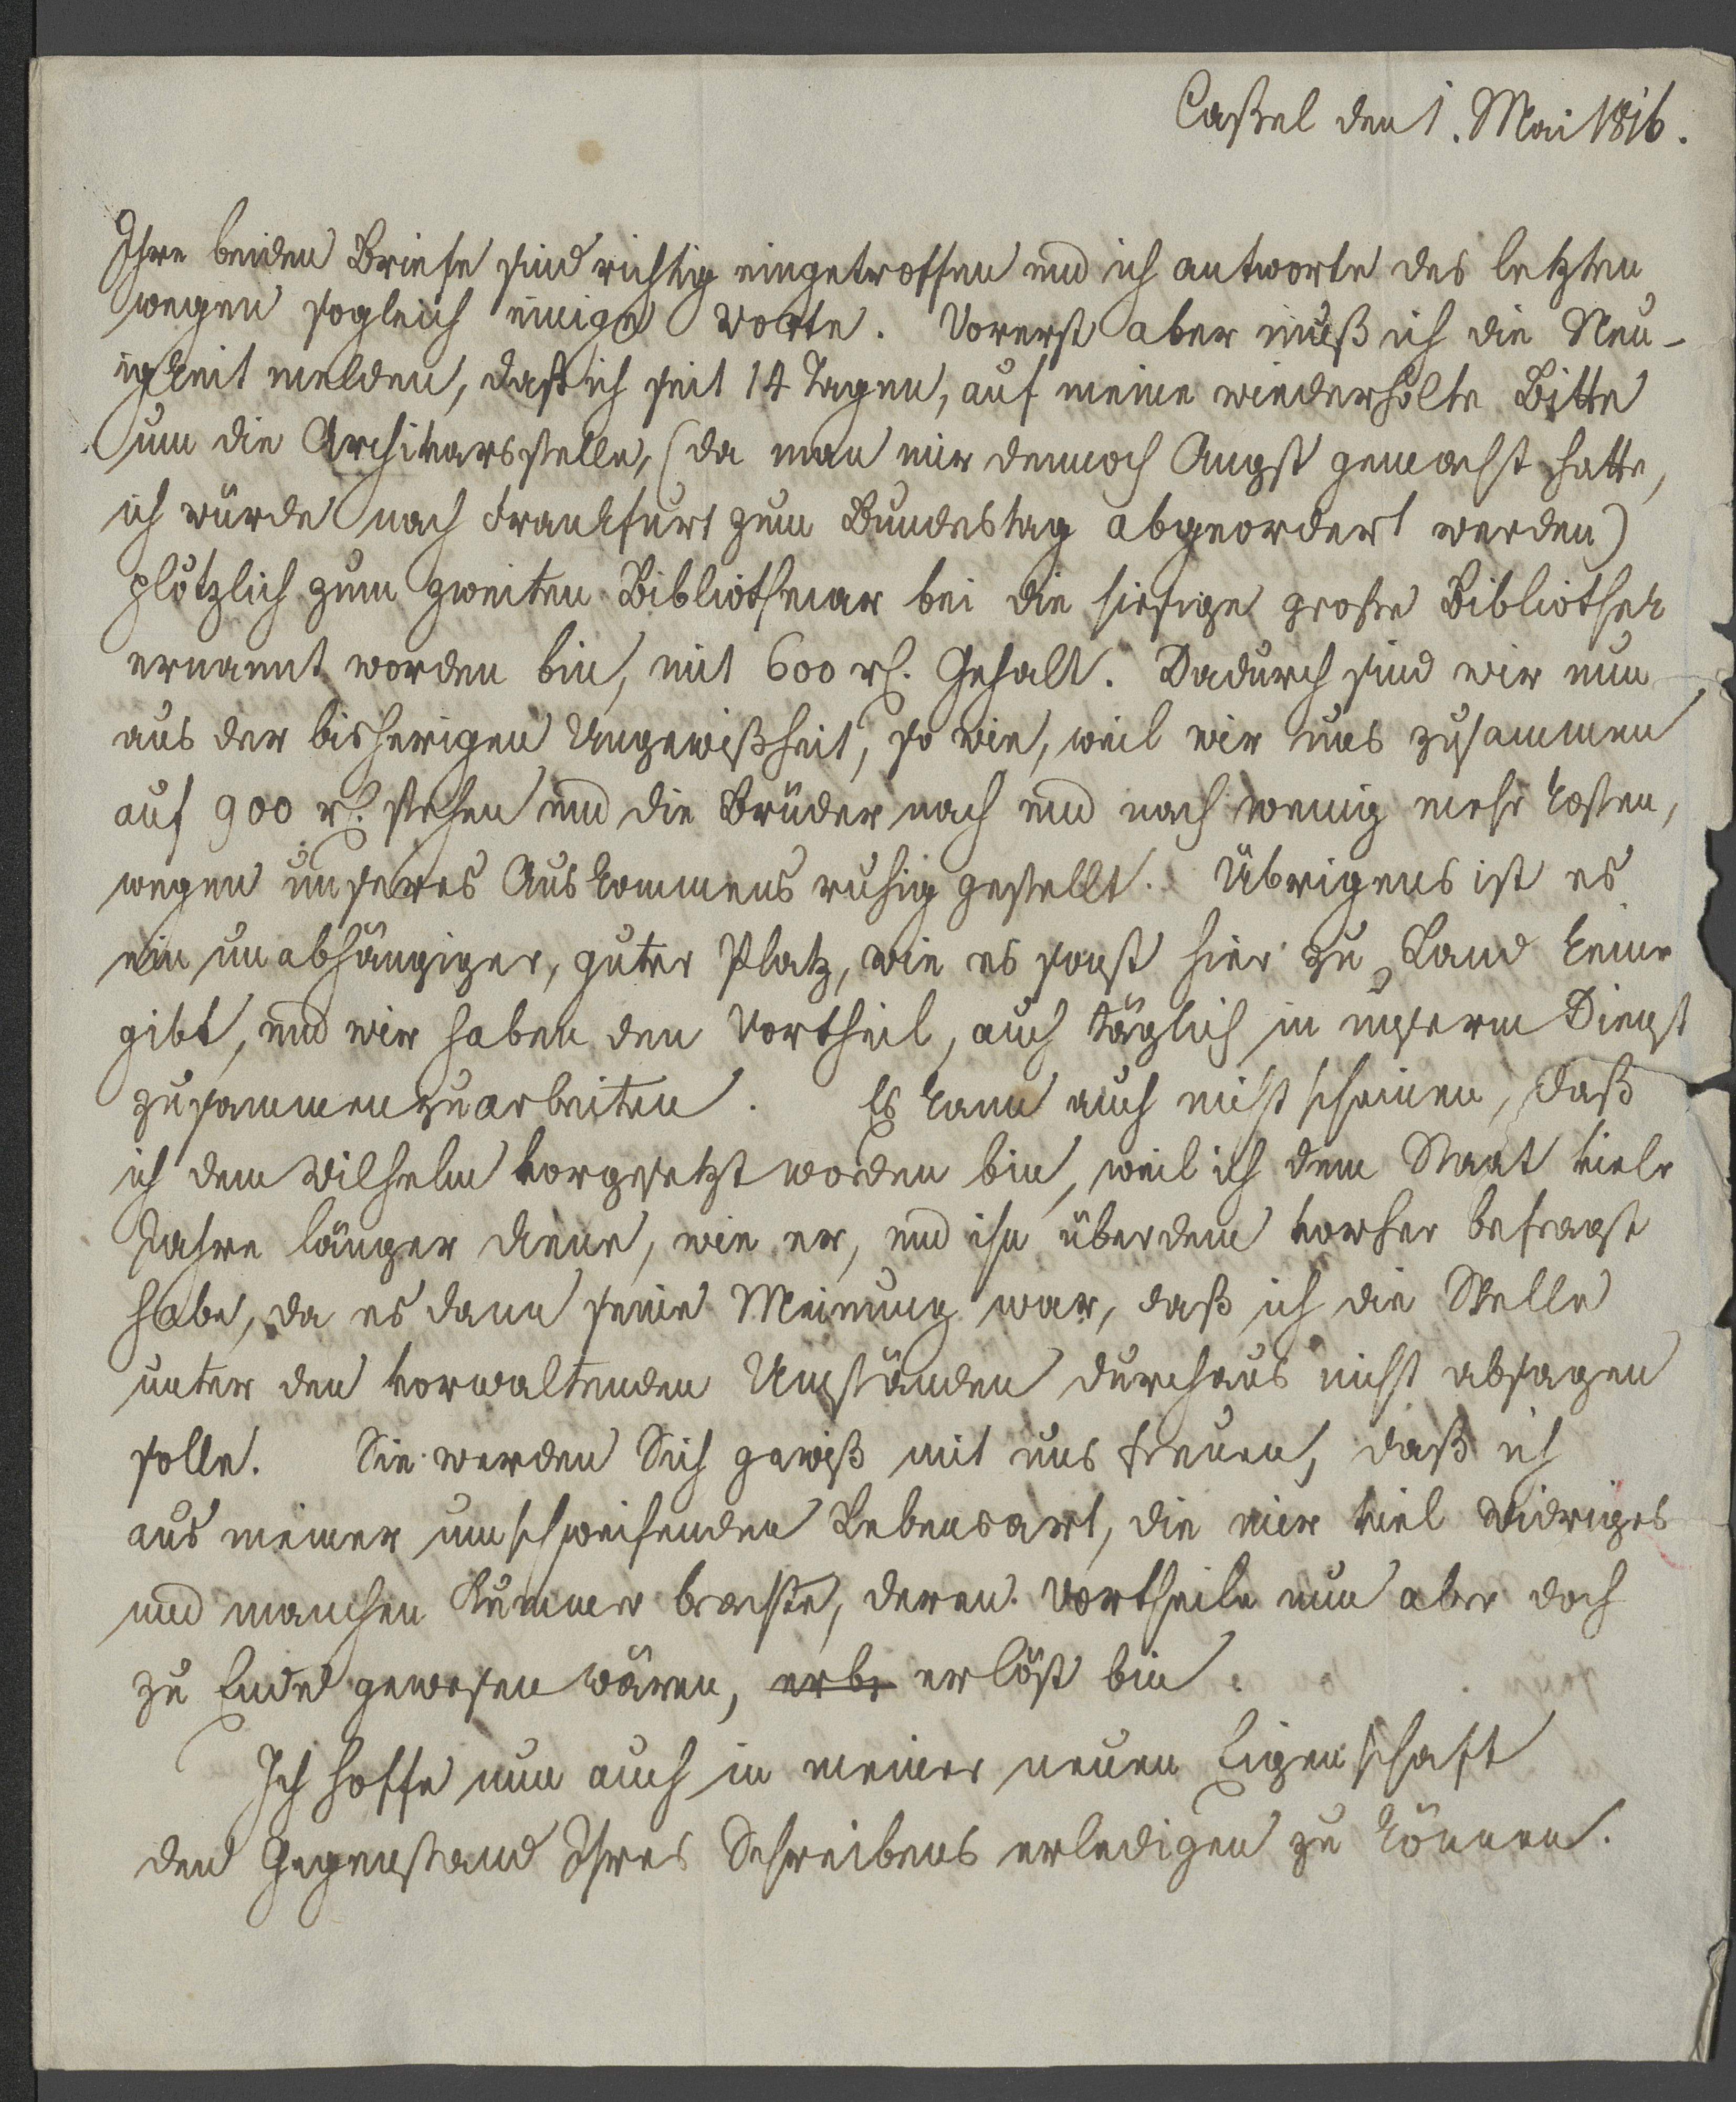 Caßel den 1. Mai 1816.
Ihre beiden Briefe sind richtig eingetroffen und ich antworte des letzten
wegen sogleich einige Worte. Vorerst aber muß ich die Neu-
igkeit melden, daß ich seit 14 Tagen, auf meine wiederholte Bitte
um die Archivarsstelle, (da man mir dennoch Angst gemacht hatte,
ich würde nach Frankfurt zum Bundestag abgeordert werden)
plötzlich zum zweiten Bibliothecar bei die hiesige große Bibliothek
ernannt worden bin, mit 600 rh. Gehalt. Dadurch sind wir nun
aus der bisherigen Ungewißheit, so wie, weil wir uns zusammen
auf 900 rh. stehen und die Brüder nach und nach wenig mehr kosten,
wegen unseres Auskommens ruhig gestellt. Übrigens ist es
ein unabhängiger, guter Platz, wie es sonst hier zu Land keine
gibt, und wir haben den Vortheil, auch täglich in unserm Dienst
zusammenzuarbeiten. Es kann auch nicht scheinen, daß
ich dem Wilhelm vorgesetzt worden bin, weil ich dem Staat viele
Jahre länger diene, wie er, und ihn überdem vorher befragt
habe, da es dann seine Meinung war, daß ich die Stelle
unter den vorwaltenden Umständen durchaus nicht absagen
solle. Sie werden Sich gewiß mit uns freuen, daß ich
aus meiner umschweifenden Lebensart, die mir viel Widriges
und manchen Kummer brachte, deren Vortheile nun aber doch
zu Ende gewesen wären, erbs erlöst bin.
Ich hoffe nun auch in meiner neuen Eigenschaft
den Gegenstand Ihres Schreibens erledigen zu können.